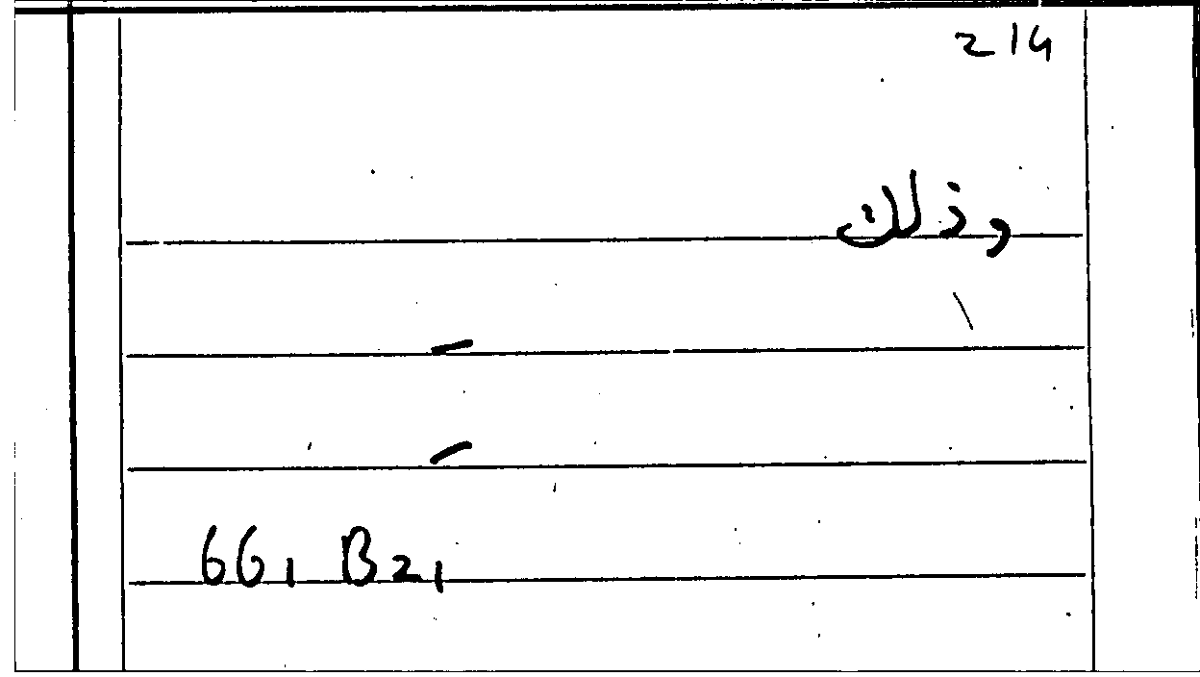 214
وذلك
66, B2,